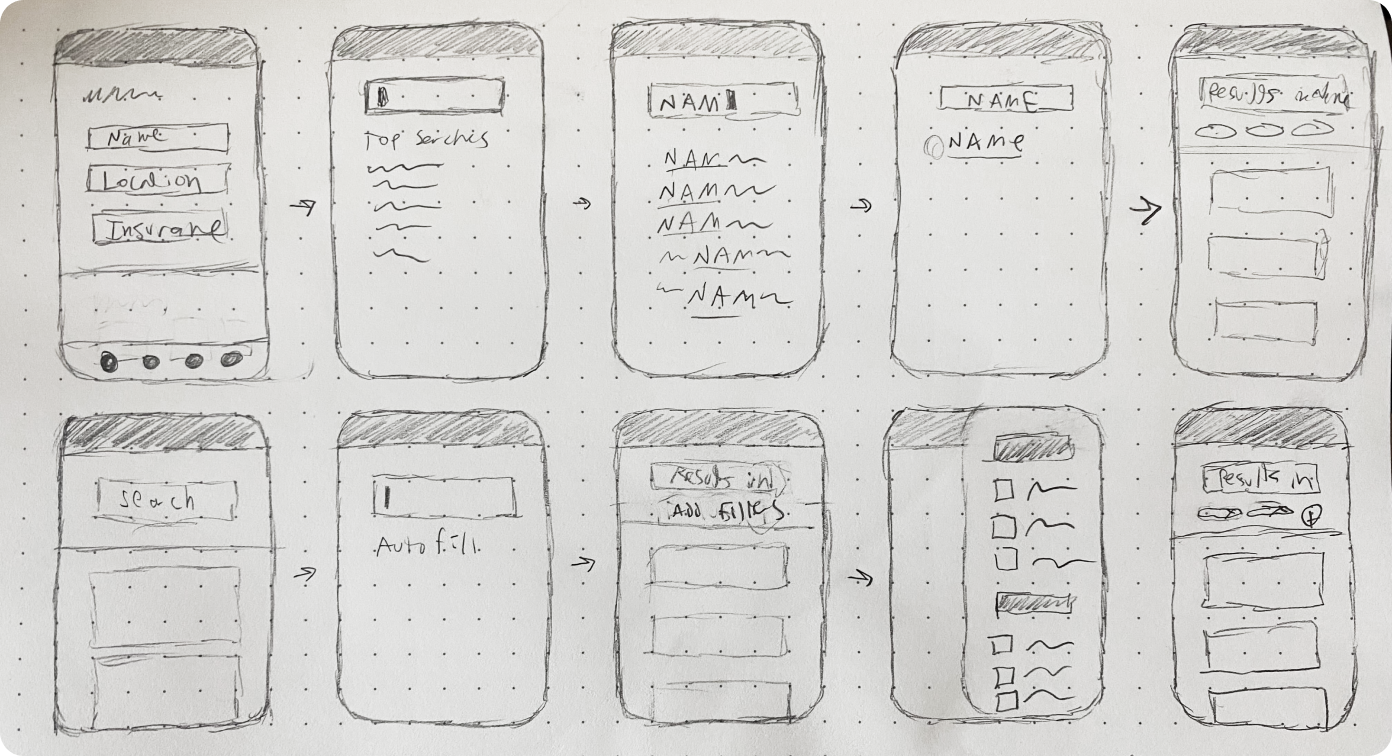 Name
Location
Insurane
Top Serches
NAM
NAM
NAM
NAM
NAM
NAM
NAME
NAME
Results in
Search
Auto fill
Results in
Add Filters
Results in